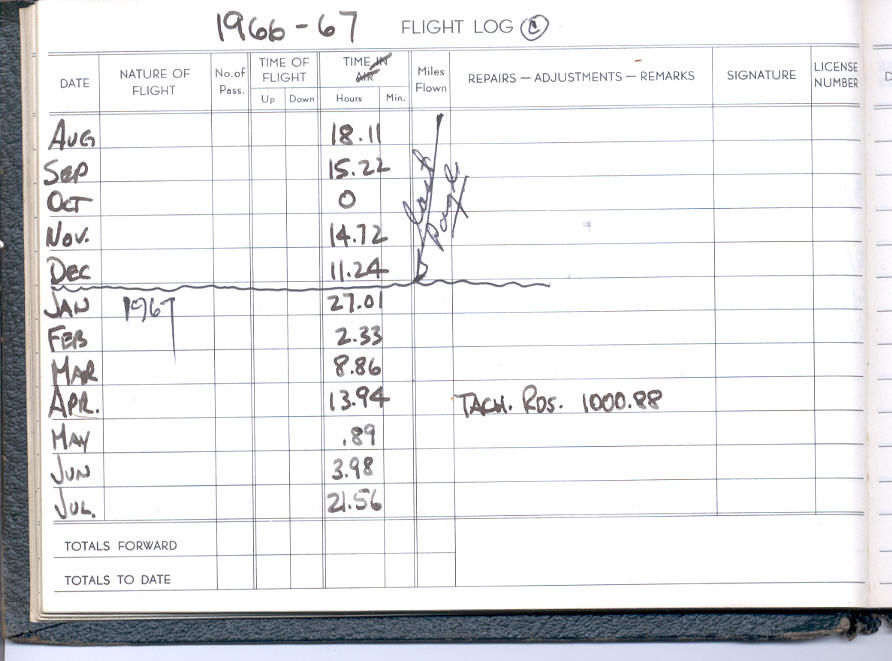 1966-67 FLIGHT LOG C
DATE NATURE OF FLIGHT No. of Pass. TIME OF FLIGHT Up Down TIME IN AIR Hours Min. Miles Flown REPAIRS — ADJUSTMENTS — REMARKS SIGNATURE LICENSE NUMBER D
AUG 18.11
SEP 15.22
OCT 0
NOV. 14.72
DEC 11.24
last page
JAN 1967 27.01
FEB 2.33
MAR 8.86
APR. 13.94 TACH. RDS. 1000.88
MAY .89
JUN 3.98
JUL. 21.56
TOTALS FORWARD
TOTALS TO DATE